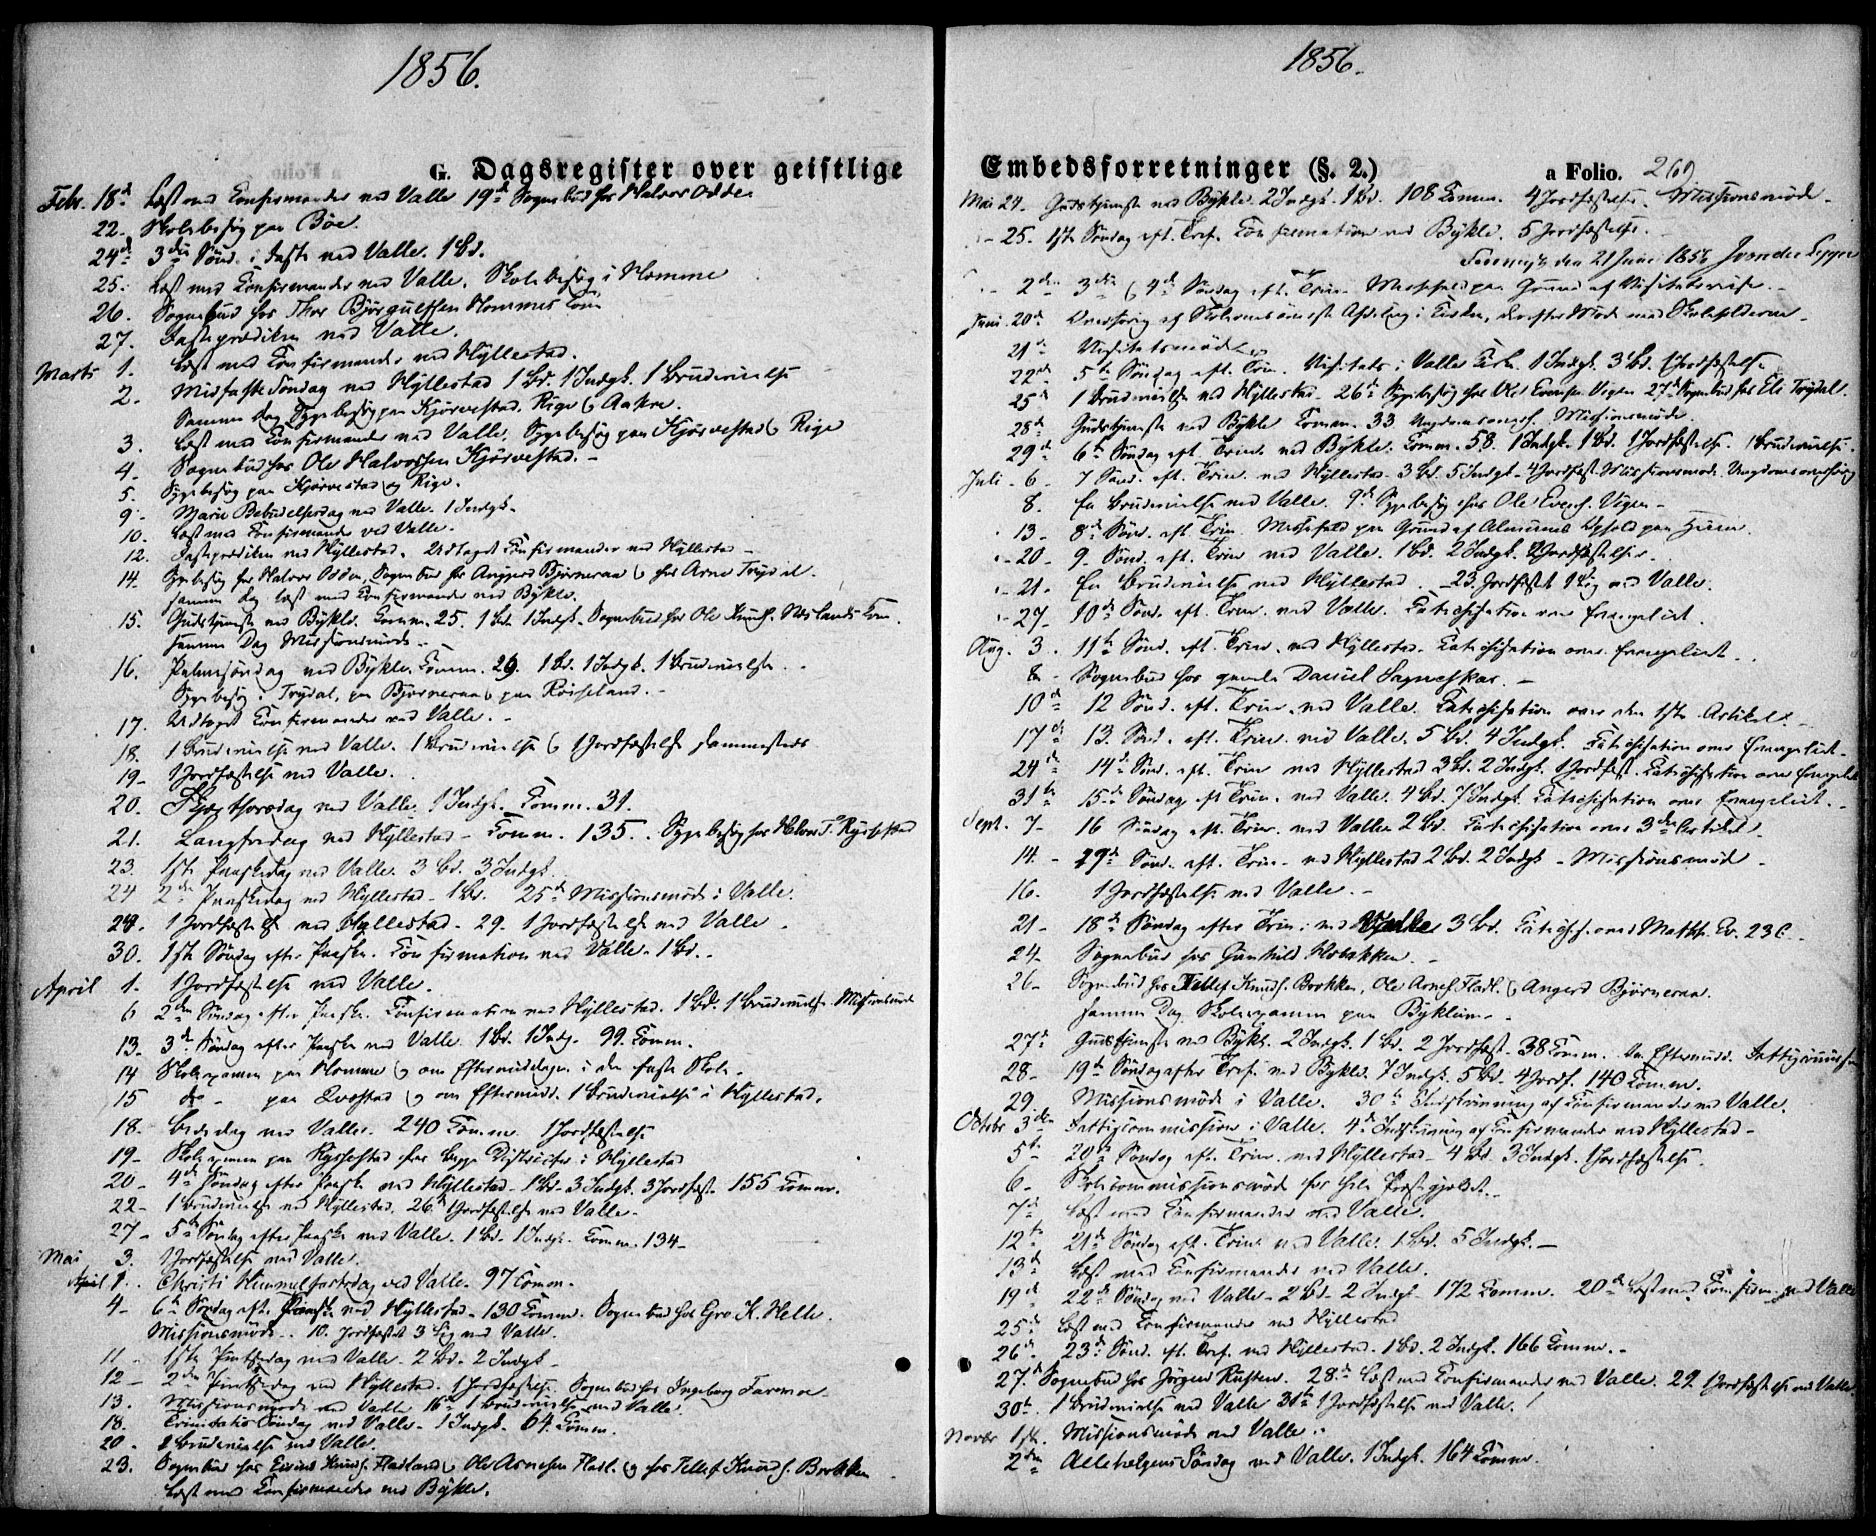 1856.
G. Dagsregister over geistlige
Febr. 18d Læst med Confirmander ved Valle 19d Sognebud hos Halvor Odde.
22. Skolebesøg paa Bøe.
24d 3die Sønd. i Faste ved Valle. 1 Bd.
25. Læst med Confirmander ved Valle. Skolebesøg i Homme
26. Sognebud hos Thor Bjørgulfsen Hommes Kone
27. Fasteprædiken ved Valle.
Marts 1. Læst med Confirmander ved Hyllestad.
2. Midfaste Søndag ved Hyllestad 1 Bd. 1 Indgk. 1 Brudevielse
Samme Dag Sygebesøg paa Kjørvestad, Rige og Aakre.
3. Læst med Confirmander ved Valle. Sygebesøg paa Kjørvestad og Rige
4. Sognebud hos Ole Halvorsen Kjørvestad. -
5. Sygebesøg paa Kjørvestad og Rige.
9. Mariæ Bebudelsesdag ved Valle. 1 Indgk.
10. Læst med Confirmander ved Valle.
12. Fasteprædiken ved Hyllestad. Udtaget Confirmander ved Hyllestad -
14. Sygebesøg hos Halvor Odden, Sognebud hos Anggerd Bjørneraa og hos Arne Trydal.
samme Dag læst med Confirmander ved Bykle.
15. Gudstjeneste ved Bykle. Comm. 25. 1 Bd. 1 Indgk. Sognebud hos Ole Knuds. Næslands Kone.
samme Dag Missionsmøde -
16. Palmesøndag ved Bykle. Comm. 29. 1 Bd. 1 Indgk. 1 Brudevielse.
Sygebesøg i Trydal, paa Bjørneraa og paa Røiseland. -
17. Udtaget Confirmander ved Valle. -
18. 1 Brudevielse ved Valle. 1 Brudevielse og 1 Jordfæstelse sammesteds
19. 1 Jordfæstelse ved Valle.
20. Skjærthorsdag ved Valle. 1 Indgk. Comm. 31.
21. Langfredag ved Hyllestad - Comm. 135. Sygebesøg hos Halvor T. Rysstad
23. 1ste Paaskedag ved Valle. 3 Bd. 3 Indgk.
24 2den Paaskedag ved Hyllestad - 1 Bd. 25d Missionsmøde i Valle.
1 Jordfæstelse ved Hyllestad - 29. 1 Jordfæstelse ved Valle
30. 1ste Søndag efter Paaske. Confirmation ved Valle. 1 Bd. -
April 1. 1 Jordfæstelse ved Valle.
6 2den Søndag efter Paaske. Confirmation ved Hyllestad. 1 Bd. 1 Brudevielse. Missionsmøde
13. 3d Søndag efter Paaske ved Valle. 1 Bd. 1 Indg. 99. Comm.
14 Skolexamen paa Homme og om Eftermiddagen i den faste Skole.
15 do - paa Qvestad og om Eftermidd. 1 Brudevielse i Hyllestad.
18. Bededag ved Valle. 240 Comm. 1 Jordfæstelse
19 - Skolexamen paa Rysstad for begge Districter i Hyllestad
20 - 4de Søndag efter Paaske ved Hyllestad - 1 Bd. 3 Indgk. 3 Jordfæst. 155 Comm.
22 - 1 Brudevielse ved Hyllestad. 26d 1 Jordfæstelse ved Valle.
27 - 5te Søndag efter Paaske ved Valle. 1 Bd. 1 Indgk. Comm. 134 -
Mai 3. 1 Jordfæstelse ved Valle.
April 1. Christi Himmelfartsdag ved Valle. 97 Comm.
4 - 6te Søndag eft. Paaske ved Hyllestad - 130 Comm. Sognebud hos Gro K. Helle.
Missionsmøde. 10. Jordfæstet 3 Lig ved Valle.
11 - 1ste Pintsedag ved Valle. 2 Bd. 2 Indgk.
12 - 2den Pintsedag ved Hyllestad. 1 Jordfæstelse. Sognebud hos Ingeborg Faremo.
13. Missionsmøde ved Valle 16d 1 Brudevielse ved Valle.
18. Trinitatis Søndag ved Valle - 1 Indgk. 64. Comm.
20. 2 Brudevielse ved Valle.
23. Sognebud hos Eivind Knuds. Flateland, Ole Arnesen Flatl. og hos Tellef Knuds. Brokken
Læst med Confirmander ved Bykle.
1856.
Embedsforretninger (§. 2.) a Folio. 260
Mai 24. Gudstjeneste ved Bykle. 2 Indgk. 1 Bd. 108 Comm. 4 Jordfæstelser. Missionsmøde.
- 25. 1ste Søndag eft. Tref. Confirmation ved Bykle. 5 Jordfæstelser.
den 21 Juni 1856
2den 3die og 4de Søndag eft. Trin. Messefald paa Grund af Visitatsreise. -
Juni 20d Overhøring af Skolernes øverste Afdeling i Kirken, derefter Møde med Skoleholderne.
21d Visitatsmøde
22d 5te Søndag eft. Trin. Visitats i Valle Kirke. 1 Indgk. 3 Bd. 1 Jordfæstelse.
25d 1 Brudevielse ved Hyllestad - 26d Sygebesøg hos Ole Evensen Vigen 27d Sognebud hos Eli Trydal.
28d Gudstjeneste ved Bykle Comm. 33 Ungdomsoverh. Missionsmøde
29d 6te Søndag eft. Trin. ved Bykle. Comm. 58. 1 Indgk. 1 Bd. 1 Jordfæstelse. 1 Brudevielse.
Juli - 6 - 7 Sønd. eft. Trin. ved Hyllestad - 3 Bd. 5 Indgk. 4 Jordfæst. Missionsmøde Ungdomsoverhøring
8. En Brudevielse ved Valle. 9d Sygebesøg hos Ole Evens. Vigen -
13 - 8d Sønd. eft. Trin. Messefald paa Grund af Almuens Ophold paa Heien.
- 20 - 9. Sønd. eft. Trin. ved Valle. 1 Bd. 2 Indgk. 2 Jordfæstelser.
- 21. En Brudevielse ved Hyllestad. - 23. Jordfæstet 1 Lig ved Valle.
- 27 - 10de Sønd. eft. Trin. ved Valle. Catechisation over Evangeliet.
Aug. 3. 11te Sønd. eft. Trin. ved Hyllestad. Catechisation over Evangeliet.
8 - Sognebud hos gamle Daniel Sagneskar. -
10d 12 Sønd. eft. Trin. ved Valle. Catechisation over den 1ste Artikel. -
17d 13. Sønd. eft. Trin. ved Valle. 5 Bd. 4 Indgk. Catechisation over Evangeliet -
24d 14de Sønd. eft. Trin ved Hyllestad 3 Bd. 2 Indgk. 1 Jordfæst. Catechisation over Evangeliet
31te 15de Søndag eft Trin. ved Valle. 4 Bd. 7 Indgk. Catechisation over Evangeliet. -
Sept. 7 - 16 Søndag eft. Trin. ved Valle 2 Bd. Catechisation over 3die Artikel.
14. - Sønd. eft. Trin. ved Hyllestad 2 Bd. 2 Indgk - Missionsmøde -
16. 1 Jordfæstelse ved Valle. -
21 - 18de Søndag efter Trin. ved Valle 3 Bd. Catechis. over Matth. Ev. 23 C. -
24 - Sognebud hos Gunhild Hobakken. -
26 - Sognebud hos Tellef Knuds. Brokken, Ole Arnes. Flatl. og Angerd Bjørneraa.
samme Dag Skolexamen paa Byklum. -
27d Gudstjeneste ved Bykle. 2 Indgk. 1 Bd. 2 Jordfæst. 38 Comm. om Eftermidd. Fattigcommission
28 - 19de Søndag efter Tref. ved Bykle. 7 Indgk. 5 Bd. 4 Jordf. 140 Comm.
29. Missionsmøde i Valle. 30te Indskrivning af Confirmander ved Valle.
Octobr 3die Fattigcommission i Valle. 4de Indskrivning af Confirmander ved Hyllestad -
5te 20de Søndag eft. Trin. ved Hyllestad - 4 Bd. 3 Indgk. 1 Jordfæstelse.
6 - Skolecommissionsmøde for hele Præstegjeldet. -
7d Læst med Confirmander ved Valle.
12te 21de Søndag eft. Trin. ved Valle. 1 Bd. 5 Indgk. -
13d Læst med Confirmander ved Valle.
19d 22de Søndag ved Valle - 2 Bd. 2 Indgk. 172 Comm. 20de Læst med Confirm. ved Valle
25d Læst med Confirmander ved Hyllestad
26d 23de Sønd. eft. Tref. ved Hyllestad. 1 Bd. 2 Indgk. 166 Comm. -
27d Sognebud hos Jørgen Rusten. 28de Læst med Confirmander ved Valle. 29 1 Jordfæstelse ved Valle
30te 1 Brudevielse ved Valle 31te 1 Jordfæstelse ved Valle.
Novbr 1ste. Missionsmøde ved Valle.
2den Allehelgens Søndag ved Valle. 1 Indgk. 164 Comm.